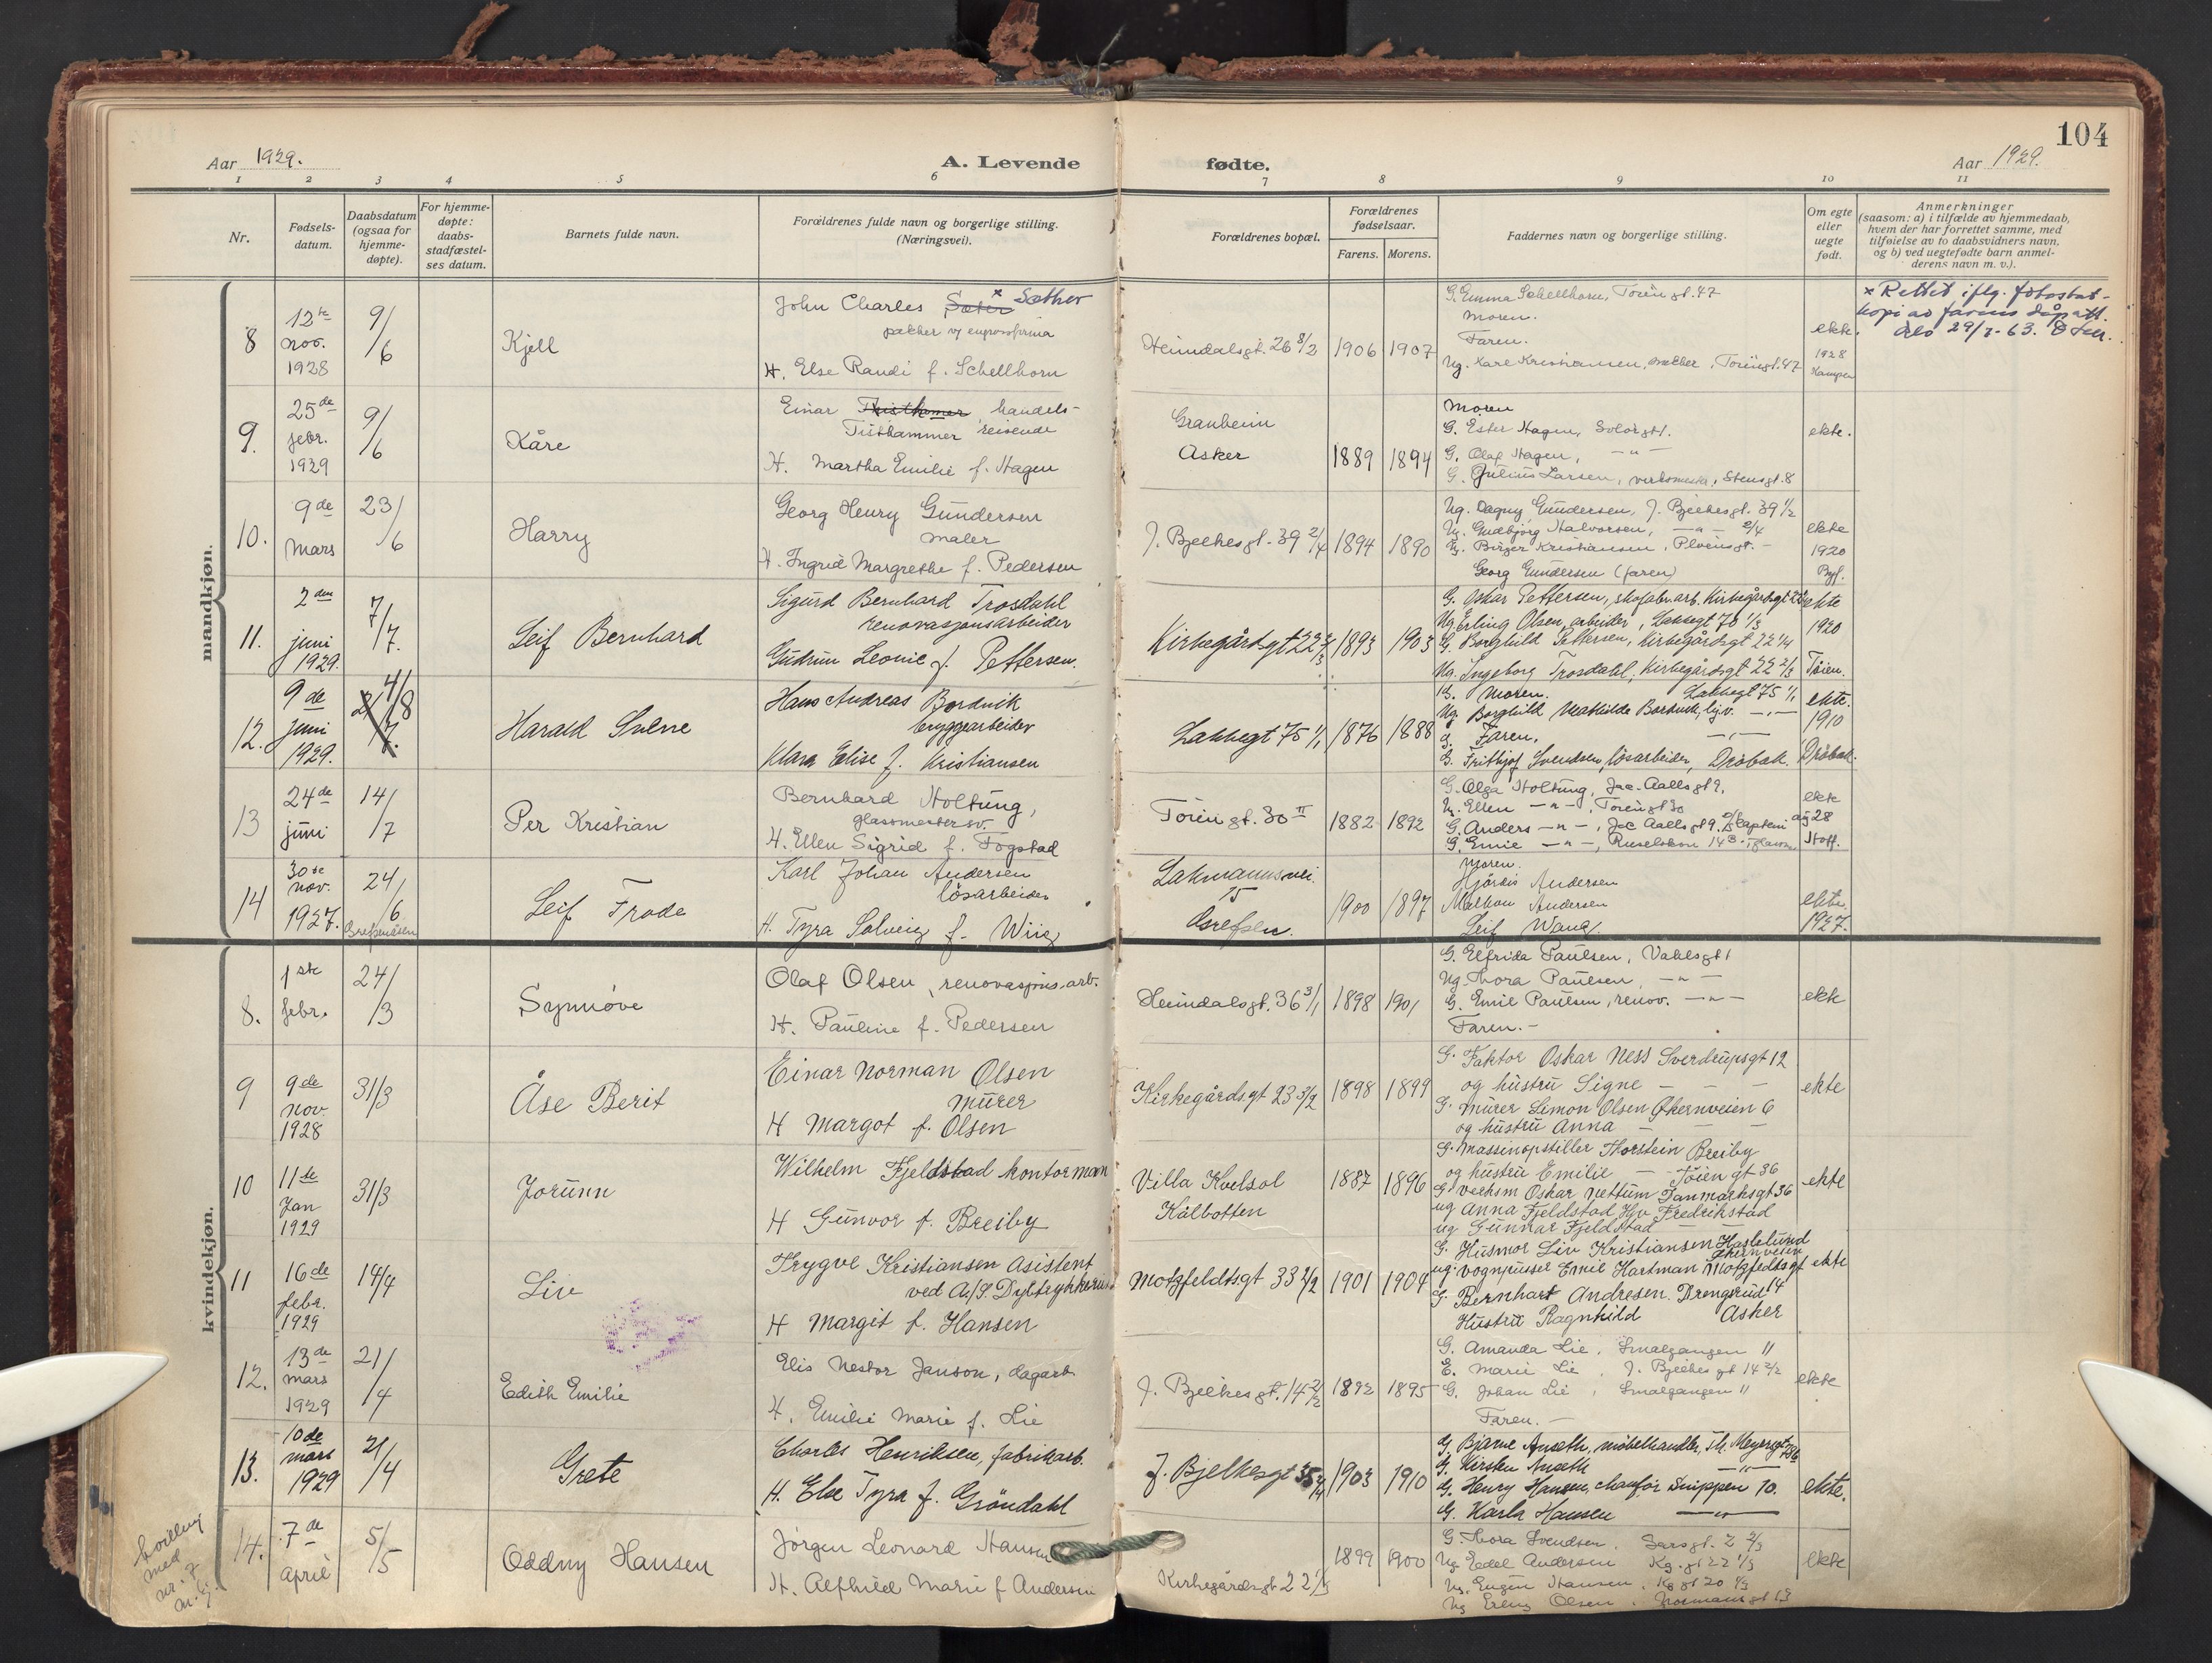 104
Aar 1929.
A. Levende
fødte.
Aar 1929.
1 2 3 4 5 6 7 8 9 10 11
Nr.
Fødsels-
datum.
Daabsdatum
(ogsaa for
hjemme-
døpte).
For hjemme-
døpte:
daabs-
stadfæstel-
ses datum.
Barnets fulde navn.
Forældrenes fulde navn og borgerlige stilling.
(Næringsvei).
Forældrenes bopæl.
Forældrenes
fødselsaar.
Farens. Morens.
Faddernes navn og borgerlige stilling.
Om egte
eller
uegte
født.
Anmerkninger
(saasom: a) i tilfælde av hjemmedaab,
hvem der har forrettet samme, med
tilføielse av to daabsvidners navn,
og b) ved uegtefødte barn anmel-
derens navn m. v.).
mandkjøn.
8
12te
nov.
1928
9/6
Kjell
John Charles Sæter x Sæther
pakker v/ engrosfirma
H. Else Randi f. Schellhorn
Heimdalsgt. 26 3/2
1906 1907
G. Emma Schellhorn, Töiengt. 47
Moren.
Faren.
Ug. Karl Kristiansen, , Töiengt. 47
ekte.
1928
Kampen
x Rettet iflg. fotostat-
kopi av farens dåpsatt.
Oslo 29/7-63.
9.
25de
febr.
1929
9/6
Kåre
Einar handels-
Tisthammer reisende
H. Martha Emilie f. Hagen
Granheim
Asker
1889 1894
Moren
G. Ester Hagen, Solörgt 1.
G. Olaf Hagen, -"-
G. Julius Larsen, verksmester, Stensgt. 8
ekte.
10.
9de
mars
23/6
Harry
Georg Henry Gundersen
maler
H. Ingrid Margrethe f. Pedersen
J. Bjelkesgt. 39 2/4
1894 1890
Ug. Dagny Gundersen, J. Bjelkesgt. 39 1/2
Ug. Gudbjörg Halvorsen, -"- 2/4
Ug. Birger Kristiansen, Plöensgt. -
Georg Gundersen (faren)
ekte
1920
Byf.
11.
2den
juni
1929.
7/7.
Leif Bernhard
Sigurd Bernhard Trosdahl
renovasjonsarbeider
Gudrun Leonie f. Pettersen.
Kirkegårdsgt 22 2/3
1893 1903
G. Oskar Pettersen, skofabr.arb. Kirkegårdsgt 22
Ug. Erling Olsen, arbeider, Lakkegt 70 1/3
G. Borghild Pettersen, Kirkegårdsgt 22 1/4
Ug. Ingeborg Trosdahl, Kirkegårdsgt 22 2/3
ekte
1920
Töien.
12.
9de
juni
1929.
4/8
Harald Svene
Hans Andreas Bordvik
bryggearbeider
Klara Elise f. Kristiansen
Lakkegt 75 1/1
1876 1888
G. Moren. Lakkegt 75 1/1
Ug. Borghild Mathilde Bordvik, hjv. -"-
G. Faren, -"-
G. Frithjof Svendsen, lösarbeider, Dröbak.
ekte.
1910
Dröbak.
13
24de
juni
14/7
Per Kristian
Bernhard Holtung,
glassmestersv.
H. Ellen Sigrid f. Fogstad
Töiengt. 30 II
1882 1892
G. Olga Holtung, Jac. Aallsgt 9,
Ug. Ellen -"-, Töiengt 30
G. Anders -"-, Jac Aallsgt 9,
G. Emie -"-,
ekte
aug 28
Hoff.
14
30te
nov.
1927.
24/6
Grefsenåsen
Leif Frode
Karl Johan Andersen
lösarbeider
H. Tyra Solveig f. Wiig
Lakmannsvei.
15
Grefsen.
1900 1897
Moren.
Hjördis Andersen
Andersen
Leif Wang.
ekte.
1927.
kvindekjøn.
8.
1ste
febr.
24/3
Synnöve
Olaf Olsen, renovasjons.arb.
H. Pauline f. Pedersen
Heimdalsgt. 36 3/1
1898 1901
G. Elfrida Paulsen, Vahlsgt 1
Ug. Thora Paulsen, -"-
G. Emil Paulsen, renov. -"-
Faren.-
ekte
9
9de
nov.
1928
31/3
Åse Berit
Einar Norman Olsen
murer
H Margot f. Olsen
Kirkegårdsgt 23 3/2
1898 1899
G. Faktor Oskar Ness Sverdrupsgt 12
og hustru Signe - - -
G. murer Simon Olsen Økernveien 6
og hustru Anna - - -
ekte
10
11te
Jan
1929
31/3
Jorunn
Wilhelm Fjeldstad kontormann
H Gunvor f. Breiby
Villa Kvelsol
Kålbotten
1887 1896
G. Massinopstiller Thorstein Breiby
og hustru Emilie - Töiengt 36
G Verksm Oskar Nettum Danmarksgt 36
ug Anna Fjeldstad Hjv Fredrikstad
ug Gunnar Fjeldstad - -
ekte
11
16de
febr.
1929
14/4
Liv
Trygve Kristiansen Asistent
ved A/S Dybtrykkeriet
H Margit f. Hansen
Motzfeldtsgt 33 2/2
1901 1904
G. Husmor Liv Kristiansen Haslelund
Økernveien
ug. vognpusser Emil Hartman Motzfeldtsgt
G Bernhart Andresen. Drengsrud 14
Hustru Ragnhild Asker
ekte
12.
13de
mars
1929
21/4
Edith Emilie
Elis Nestor Janson, dagarb.
H. Emilie Marie f. Lie
J. Bjelkesgt. 14 2/2
1892 1895
G. Amanda Lie, Smalgangen 11
E. Marie Lie, J. Bjelkesgt 14 2/2
G. Johan Lie, Smalgangen 11
Faren.-
ekte
13.
10de
mars
1929
21/4
Grete
Charles Henriksen, fabrikarb.
H. Else Tyra f. Gröndahl
J. Bjelkesgt 35
1903 1910
G. Bjarne Anseth, möbelhandler, Th. Meyersgt
G. Kirsten Anseth -"-
G. Henry Hansen, chauför Snippen 10.
G. Karla Hansen -"-
ekte.
tvilling
med
nr. 7
m.kj.
14.
7de
april
5/5
Oddny Hansen
Jörgen Leonard Hansen
H. Alfhild Marie f Andersen
Kirkegårdsgt 22 1/3
1899 1900
G. Thora Svendsen, Sarsgt. 2 2/3
Ug. Edel Andersen Kg.gt 22 1/3
Ug. Eugen Hansen, Kg gt 20 4/3
Ug Erling Olsen, Normansgt 13
ekte